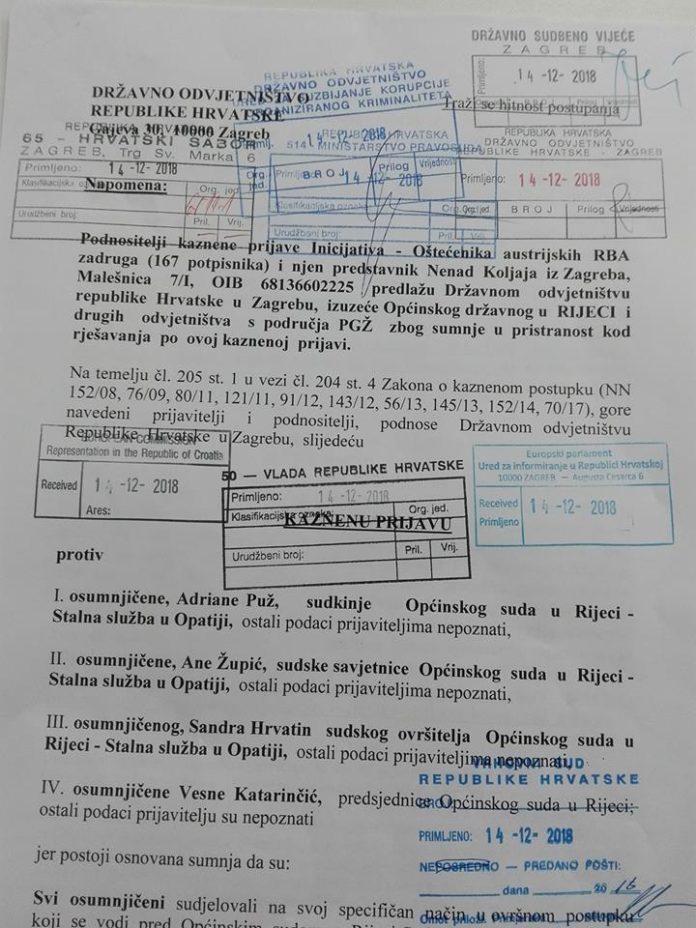 DRŽAVNO SUDBENO VIJEĆE
ZAGREB
Primljeno: 14 -12- 2018
REPUBLIKA HRVATSKA
DRŽAVNO ODVJETNIŠTVO
UZBIJANJE KORUPCIJE
ORGANIZIRANOG KRIMINALITETA
14 -12- 2018
DRŽAVNO ODVJETNIŠTVO
REPUBLIKE HRVATSKE
Gajeva 30, 10000 Zagreb
Traži se hitnost postupanja
65 – HRVATSKI SABOR
ZAGREB, Trg Sv. Marka 6
Primljeno: 14 -12- 2018
Klasifikacijska Org. jed.
Urudžbeni broj: Pril. Vrij.
HRVATSKA
514 MINISTARSTVO PRAVOSUĐA
Primljeno: 14 -12- 2018
BROJ Prilog Vrijednost
Klasifikacijska oznaka Org. jed.
Urudžbeni broj:
REPUBLIKA HRVATSKA
DRŽAVNO ODVJETNIŠTVO
REPUBLIKE HRVATSKE - ZAGREB
Primljeno: 14 -12- 2018
Org. jed. BROJ Prilog Vrijednost
Napomena:
Podnositelji kaznene prijave Inicijativa - Oštećenika austrijskih RBA
zadruga (167 potpisnika) i njen predstavnik Nenad Koljaja iz Zagreba,
Malešnica 7/I, OIB 68136602225 predlažu Državnom odvjetništvu
republike Hrvatske u Zagrebu, izuzeće Općinskog državnog u RIJECI i
drugih odvjetništva s područja PGŽ zbog sumnje u pristranost kod
rješavanja po ovoj kaznenoj prijavi.
Na temelju čl. 205 st. 1 u vezi čl. 204 st. 4 Zakona o kaznenom postupku (NN
152/08, 76/09, 80/11, 121/11, 91/12, 143/12, 56/13, 145/13, 152/14, 70/17), gore
navedeni prijavitelji i podnositelji, podnose Državnom odvjetništvu
Republike Hrvatske u Zagrebu, slijedeću
EUROPEAN COMMISSION
Representation in the Republic of Croatia
Received 14 -12- 2018
Ares:
50 — VLADA REPUBLIKE HRVATSKE
Primljeno: 14 -12- 2018
Klasifikacijska oznaka: Org. jed.
Urudžbeni broj: Pril. Vrij.
Europski parlament
Ured za informiranje u Republici Hrvatskoj
10000 ZAGREB — Augusta Cesarca 6
Received
Primljeno 14 -12- 2018
KAZNENU PRIJAVU
protiv
I. osumnjičene, Adriane Puž, sudkinje Općinskog suda u Rijeci -
Stalna služba u Opatiji, ostali podaci prijaviteljima nepoznati,
II. osumnjičene, Ane Župić, sudske savjetnice Općinskog suda u Rijeci -
Stalna služba u Opatiji, ostali podaci prijaviteljima nepoznati,
III. osumnjičenog, Sandra Hrvatin sudskog ovršitelja Općinskog suda u
Rijeci - Stalna služba u Opatiji, ostali podaci prijaviteljima nepoznati,
IV. osumnjičene Vesne Katarinčić, predsjednice Općinskog suda u Rijeci;
ostali podaci prijavitelju su nepoznati
VRHOVNI SUD
REPUBLIKE HRVATSKE
BROJ
PRIMLJENO: 14 -12- 2018
NEPOSREDNO — PREDANO POŠTI:
dana 20
jer postoji osnovana sumnja da su:
Svi osumnjičeni sudjelovali na svoj specifičan način u ovršnom postupku
koji se vodi pred Općinskim